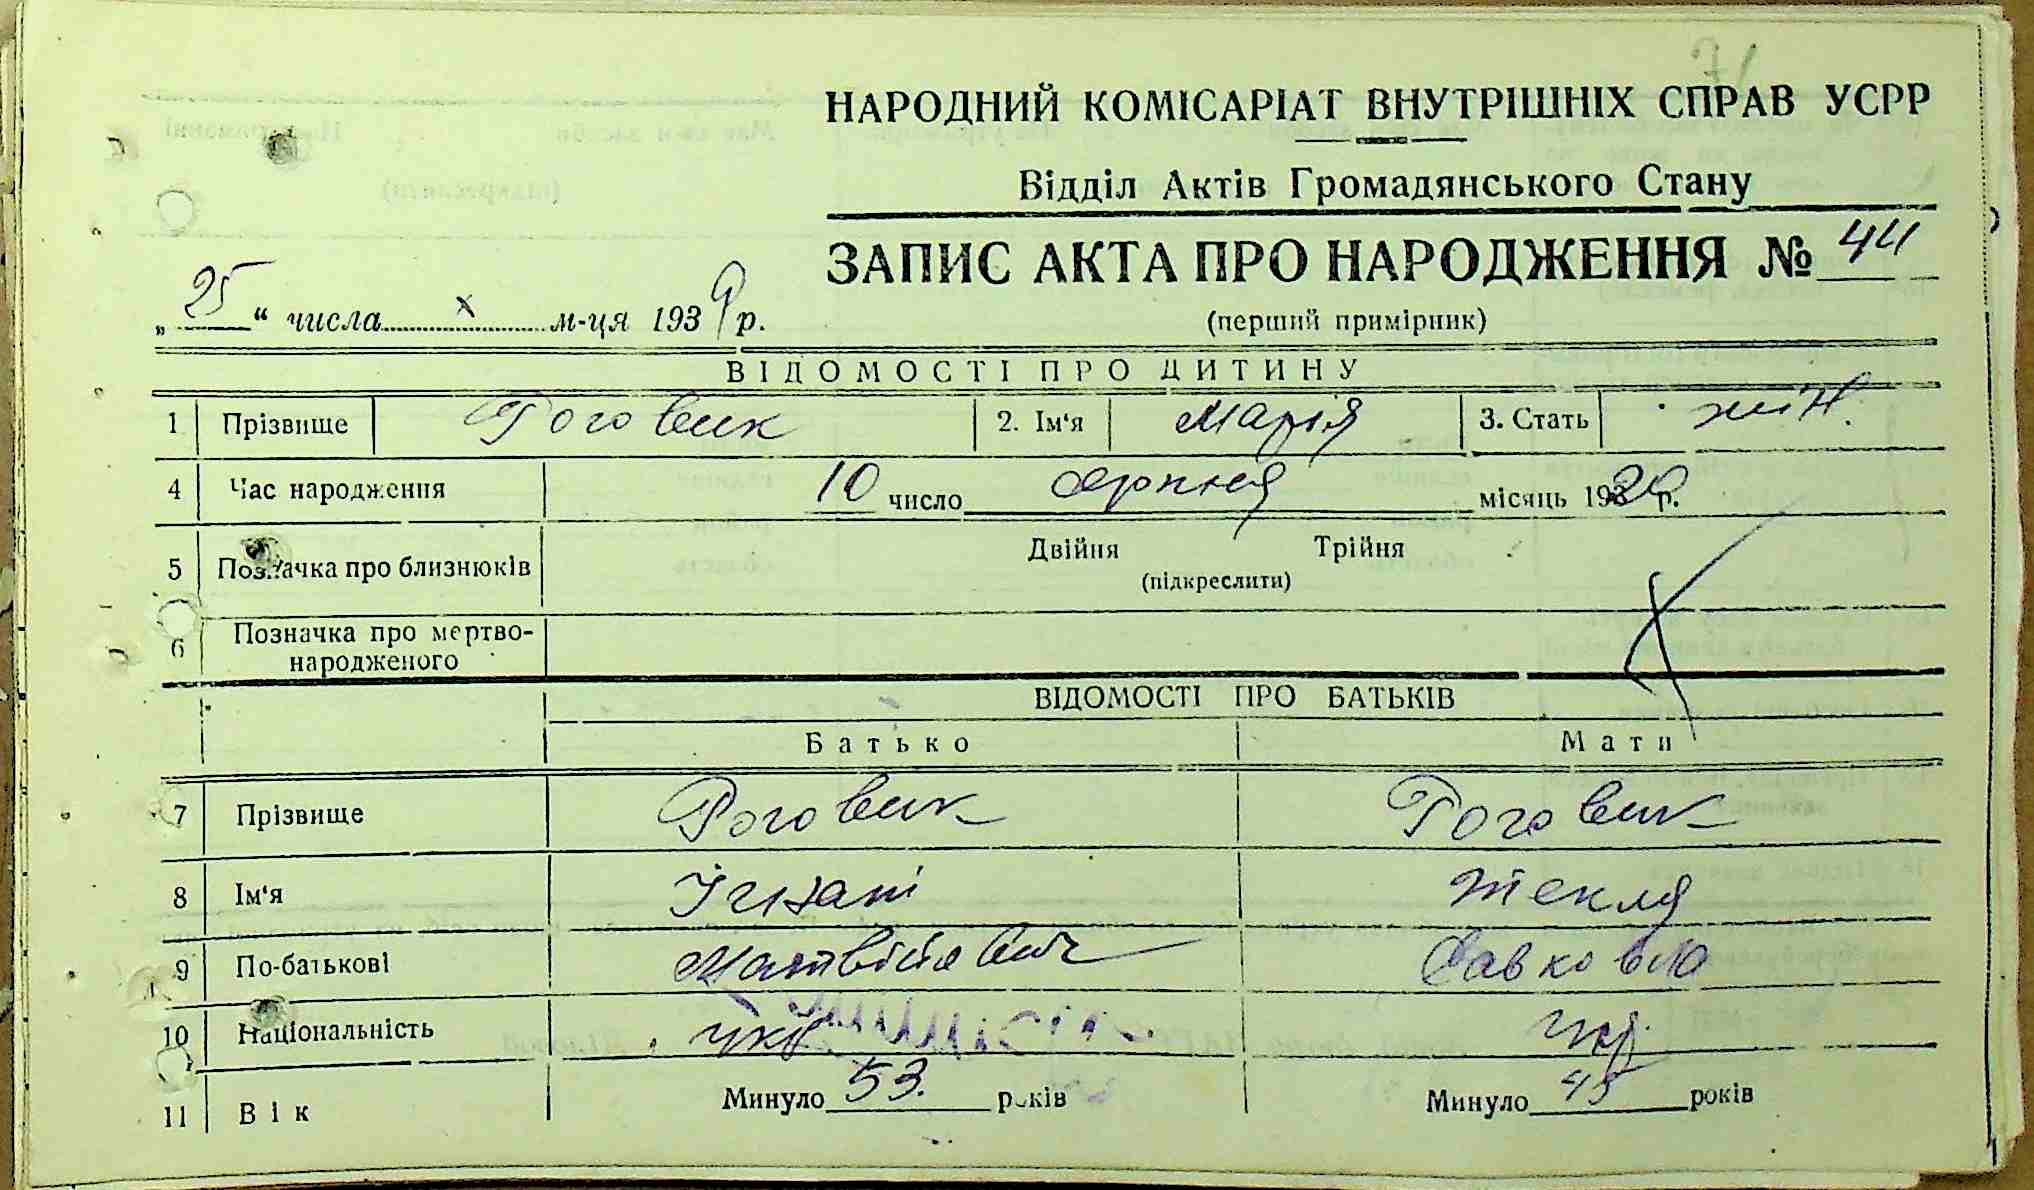 НАРОДНИЙ КОМІСАРІАТ ВНУТРІШНІХ СПРАВ УСРР
Відділ Актів Громадянського Стану
ЗАПИС АКТА ПРО НАРОДЖЕННЯ № 44
„25“ числа x м-ця 1939 р.
(перший примірник)
ВІДОМОСТІ ПРО ДИТИНУ
1 Прізвище Роговик 2. Ім'я Марія 3. Стать жін.
4 Час народження 10 число серпня місяць 193 р.
5 Позначка про близнюків Двійня Трійня
(підкреслити)
6 Позначка про мертво-
народженого
ВІДОМОСТІ ПРО БАТЬКІВ
Батько Мати
7 Прізвище Роговик Роговик
8 Ім'я Ігнат Текля
9 По-батькові Матвійович Савковна
10 Національність укр. Укр.
11 Вік Минуло 53. років Минуло 45 років